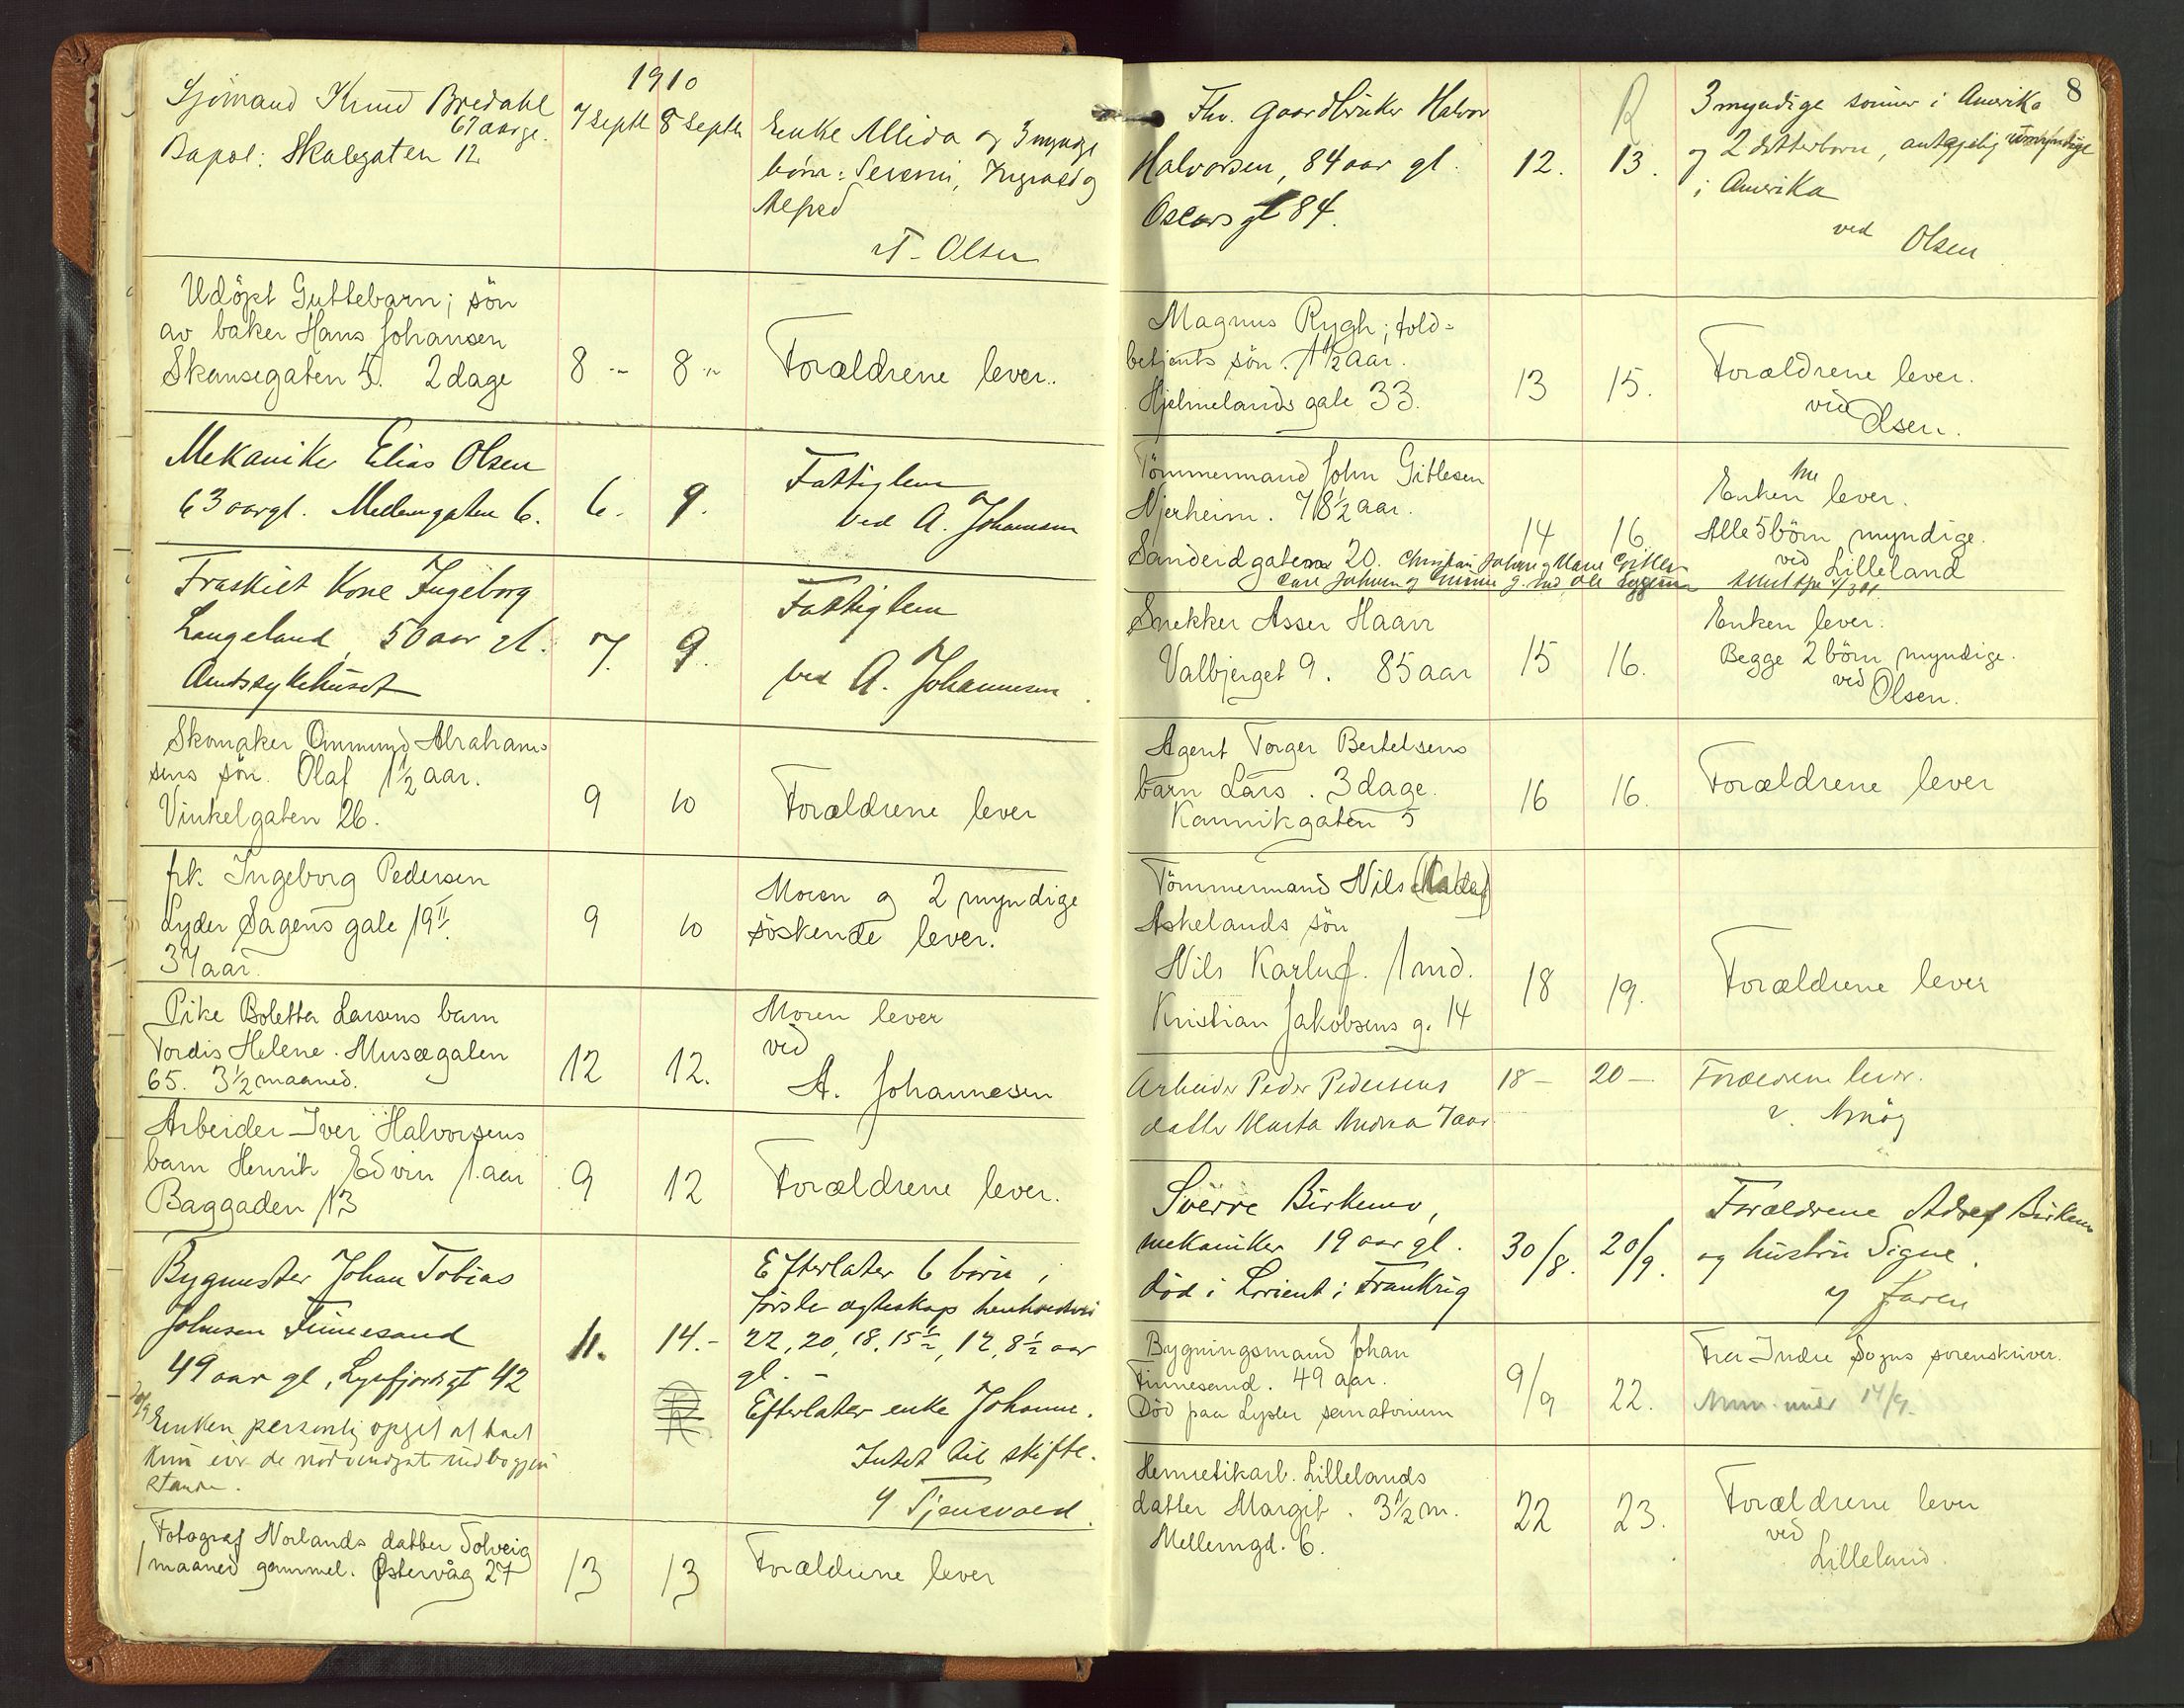 1910
Sjömand Knud Bredahl
67 aar ge.
Bapæl: Skalegaten 12
7 Septb 8 Septb
Enke Allida og 3 myndge
börn: Severin, Ingvald og
Alfred
T. Olsen
Udöpt Guttebarn; sön
av baker Hans Johansen
Skansegaten 5. 2 dage
8 -"- 8 -"-
Forældrene lever..
Mekanike Elias Olsen
63 aar gl. Mellemgaten 6.
6. 9.
Fattiglem
ved A. Johannesen
Fraskilt Kone Ingeborg
Langeland, 50 aar gl.
Amtssykehuset
7. 9.
Fattiglem
ved A. Johannesen
Skomaker Ommund Abraham=
sens sön. Olaf 1 1/2 aar.
Vinkelgaten 26.
9 10
Forældrene lever
frk. Ingeborg Pedersen
Lyder Sagens gate 19 II.
37 aar.
9 10
Moren og 2 myndige
söskende lever.
Pike Boletta Larsens barn
Tordis Helene. Musægaten
65. 3 1/2 maaned.
12 12.
Moren lever
ved
A. Johannesen
Arbeider Iver Halvorsens
barn Henrik Edvin 1 aar
Baggaden 13
9 12
Forældrene lever.
Bygmester Johan Tobias
Johnsen Finnesand
49 aar gl, Lysefjordsgt 42
11. 14.-
20/9 Enken personlig opgit at havt
kun de nödvendigste indbogjen
stande.
Efterlater 6 börn i
förste ægteskap henholdsvis
22, 20, 18, 15 1/2, 12, 8 1/2 aar
gl. -
Efterlater enke Johanne.
Intet til skifte.
v/ Tjensvold.
Fotograf Norlands datter Solveig
1 maaned gammel. Østervåg 27
13 13
Forældrene lever
8
Fhv. gaardbruker Halvor
Halvorsen, 84 aar gl.
Oscars gt 84.
12. 13.
R
3 myndige sönner i Amerika
og 2 datterborn, antagelig umyndige
i Amerika
ved Olsen
Magnus Rygh; told=
betjents sön. 1 1/2 aar.
Hjelmelands gate 33.
13 15.
Forældrene lever.
ved
Olsen.
Tömmermand John Gitlesen
Njerheim. 78 1/2 aar.
Sandeidgaten 20. Christian Johan og Marie Gitlesen
14 16.
Enken lever.
Alle 5 börn myndige.
ved Lilleland
Snekker Asser Haaver
Valbjerget 9. 85 aar
15 16.
Enken lever.
Begge 2 börn myndige.
ved
Olsen.
Agent Torger Bertelsens
barn Lars. 3 dage.
Kannikgaten 5
16 16.
Forældrene lever
Tömmermand Nils
Askelands sön
Nils Karluf. 1 md.
Kristian Jakobsens g. 14
18 19.
Forældrene lever
Arbeider Peder Pedersens
datter Marta Andrea 7 aar.
18 - 20 -
Forældrene lever.
v. Amög
Sverre Birkemo,
mekaniker 19 aar gl.
död i Lorient i Frankrig
30/8. 20/9.
Forældrene Adolf Birkemo
og hustru Signe.
v/ Jaren
Bygningsmand Johan
Finnesand. 49 aar.
Död paa Lyster sanatorium
9/9 22.
Fra Indre Sogns sorenskriver.
14/9.
Hermetikarb. Lillelands
datter Margit. 3 1/2 m.
Mellemgd. 6.
22 23.
Forældrene lever
ved
Lilleland.